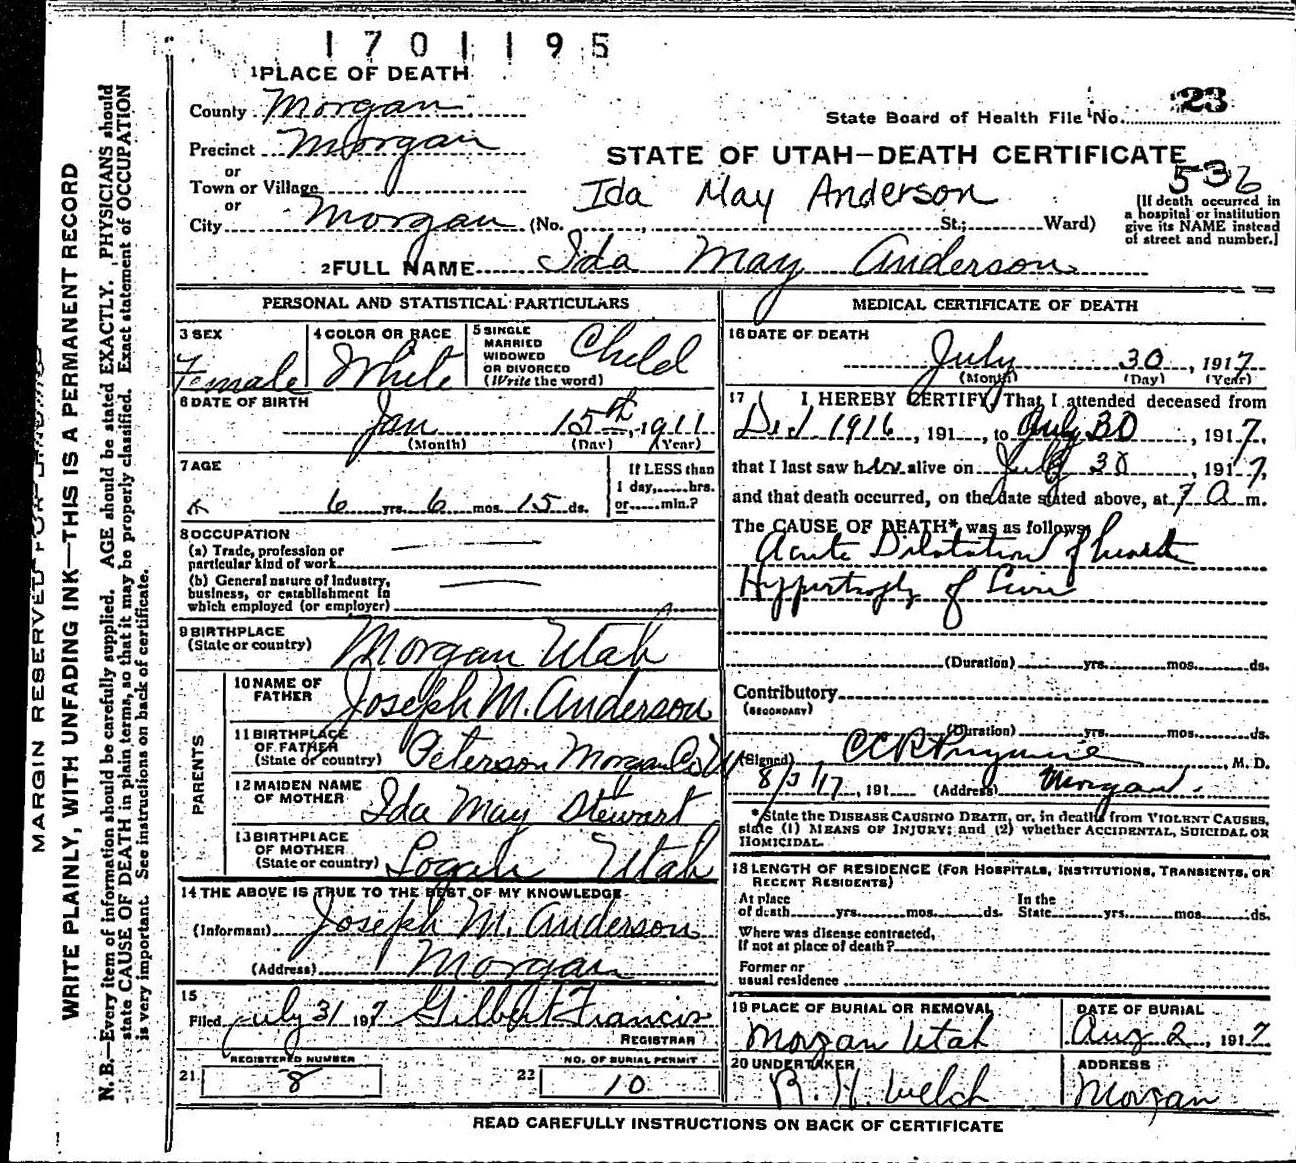 1701195
1 PLACE OF DEATH
County Morgan
Precinct Morgan
or
Town or Village
or
City Morgan (No. , St.; Ward)
State Board of Health File No. 23
STATE OF UTAH—DEATH CERTIFICATE
536
Ida May Anderson
[If death occurred in
a hospital or institution
give its NAME instead
of street and number.]
2 FULL NAME Ida May Anderson
PERSONAL AND STATISTICAL PARTICULARS
3 SEX
Female
4 COLOR OR RACE
White
5 SINGLE
MARRIED
WIDOWED
OR DIVORCED
(Write the word)
Child
6 DATE OF BIRTH
Jan 15th, 1911
(Month) (Day) (Year)
7 AGE
6 yrs. 6 mos. 15 ds.
If LESS than
1 day,.....hrs.
or.....min.?
8 OCCUPATION
(a) Trade, profession or
particular kind of work
(b) General nature of Industry,
business, or establishment in
which employed (or employer)
9 BIRTHPLACE
(State or country)
Morgan Utah
PARENTS
10 NAME OF
FATHER
Joseph M. Anderson
11 BIRTHPLACE
OF FATHER
(State or country)
Peterson Morgan Co. U
12 MAIDEN NAME
OF MOTHER
Ida May Stewart
13 BIRTHPLACE
OF MOTHER
(State or country)
Logan Utah
14 THE ABOVE IS TRUE TO THE BEST OF MY KNOWLEDGE
(Informant) Joseph M. Anderson
(Address) Morgan
15
Filed July 31 1917 Gilbert Francis
REGISTRAR
REGISTERED NUMBER
21 8
NO. OF BURIAL PERMIT
22 10
MEDICAL CERTIFICATE OF DEATH
16 DATE OF DEATH
July 30, 1917
(Month) (Day) (Year)
17 I HEREBY CERTIFY, That I attended deceased from
1916, 191 , to July 30, 1917,
that I last saw her alive on July 30, 1917,
and that death occurred, on the date stated above, at 7 a m.
The CAUSE OF DEATH* was as follows:
Acute Dilatation of heart
Hypertrophy of Liver
(Duration) yrs. mos. ds.
Contributory
(SECONDARY)
(Duration) yrs. mos. ds.
(Signed) M. D.
8/31/17, 191 (Address) Morgan.
*State the DISEASE CAUSING DEATH, or, in deaths from VIOLENT CAUSES,
state (1) MEANS OF INJURY; and (2) whether ACCIDENTAL, SUICIDAL OR
HOMICIDAL.
18 LENGTH OF RESIDENCE (FOR HOSPITALS, INSTITUTIONS, TRANSIENTS, OR
RECENT RESIDENTS)
At place
of death yrs. mos. ds.
In the
State yrs. mos. ds.
Where was disease contracted,
if not at place of death?
Former or
usual residence
19 PLACE OF BURIAL OR REMOVAL
Morgan Utah
DATE OF BURIAL
Aug 2, 1917
20 UNDERTAKER
R. H. Welch
ADDRESS
Morgan
READ CAREFULLY INSTRUCTIONS ON BACK OF CERTIFICATE
MARGIN RESERVED FOR
WRITE PLAINLY, WITH UNFADING INK—THIS IS A PERMANENT RECORD
N. B.—Every item of information should be carefully supplied. AGE should be stated EXACTLY. PHYSICIANS should
state CAUSE OF DEATH in plain terms, so that it may be properly classified. Exact statement of OCCUPATION
is very important. See instructions on back of certificate.